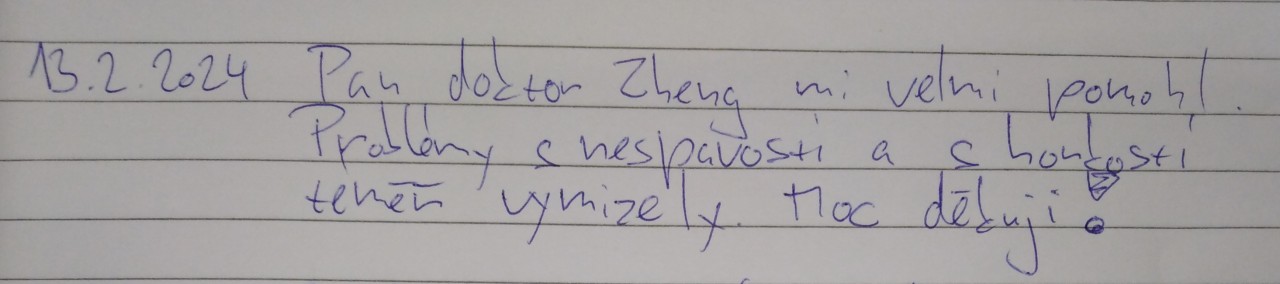 13.2.2024 Pan doktor Zheng mi velmi pomohl.
Problémy s nespavostí a s horkostí
téměř vymizely. Moc děkuji!